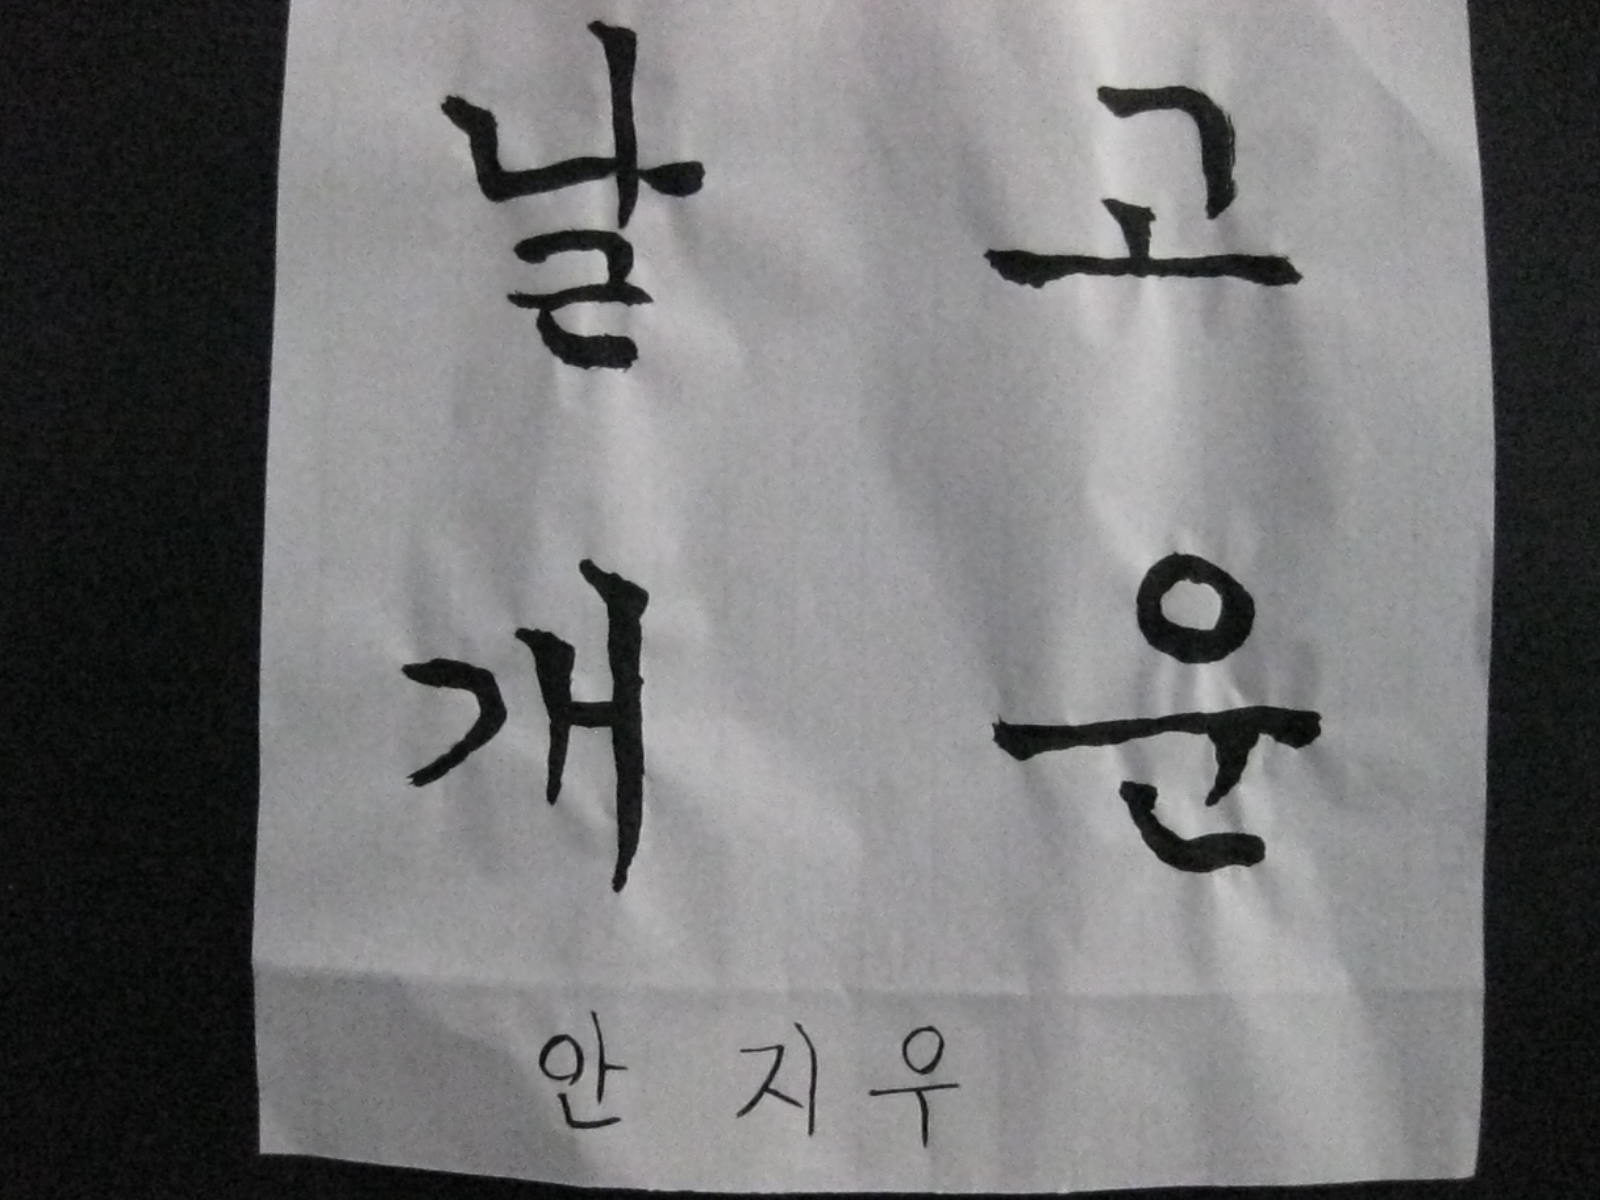 고운
날개
안지우